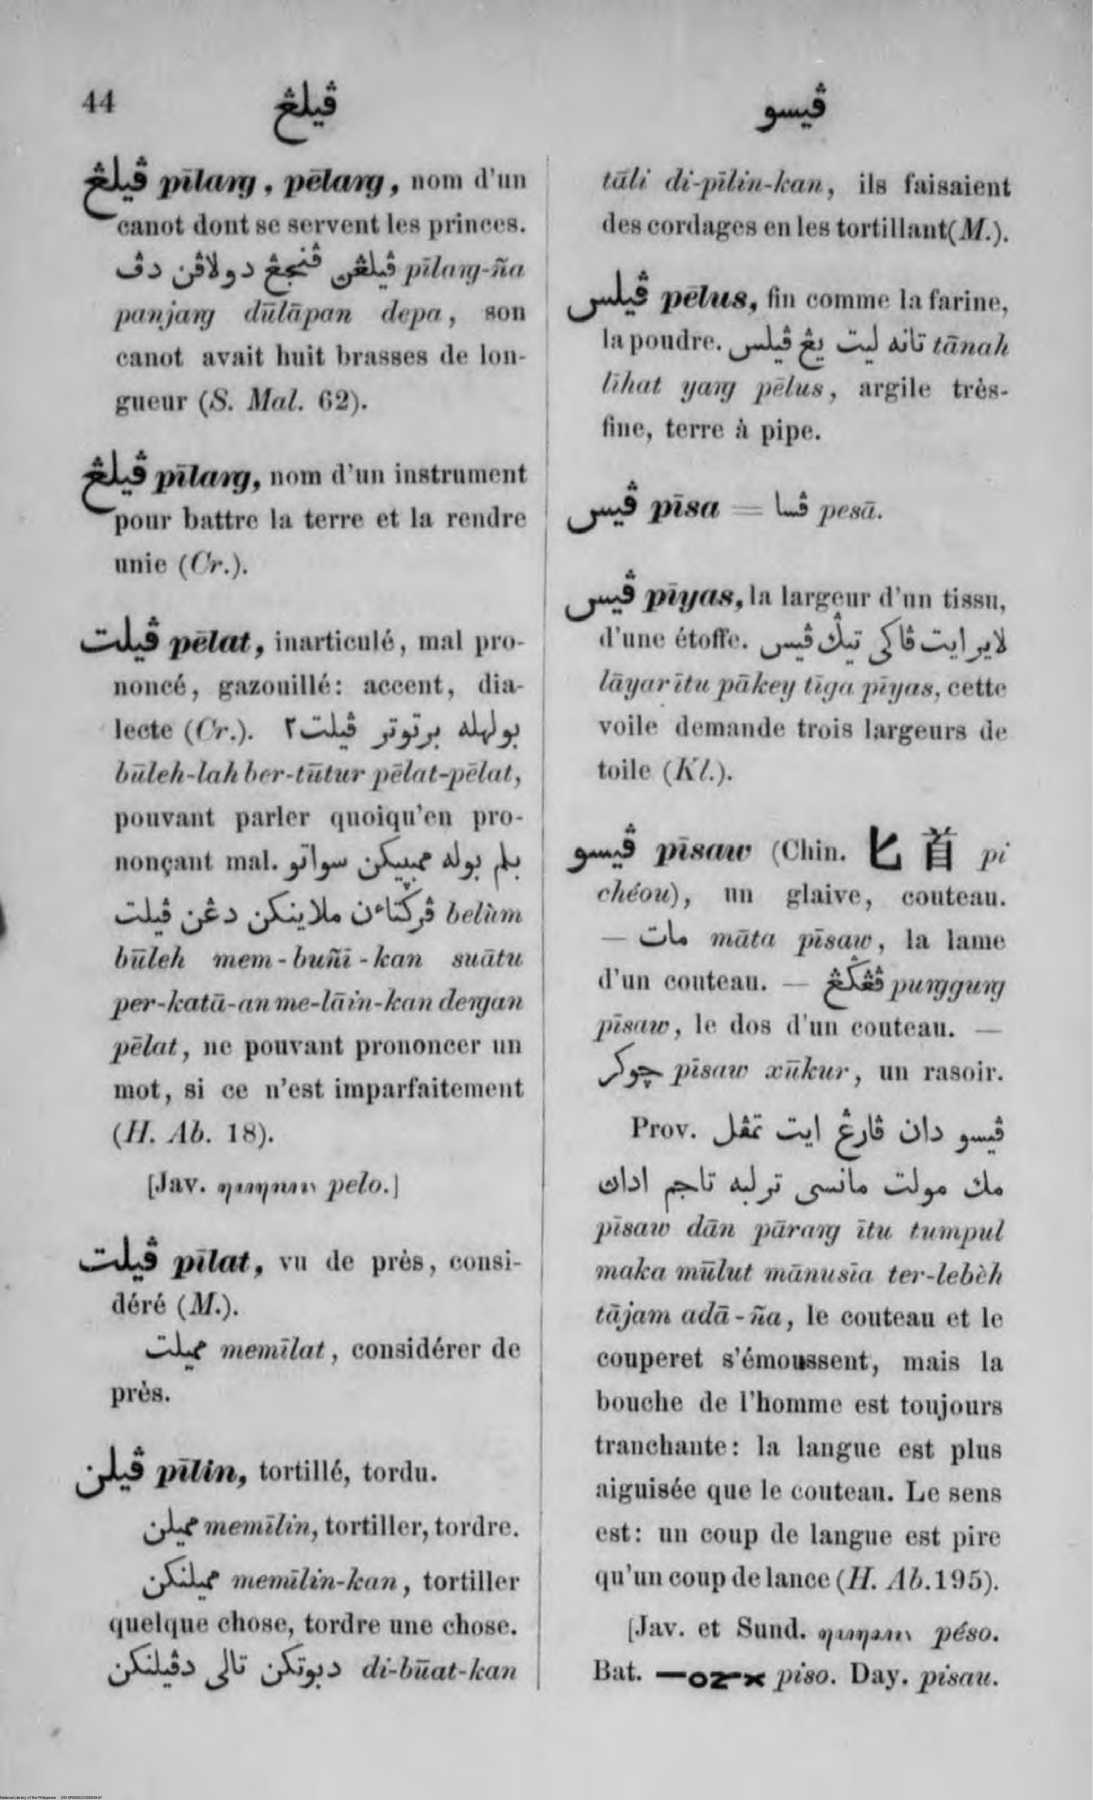 44
ڤيلڠ
ڤيسو
ڤيلڠ pīlaŋ, pēlaŋ, nom d'un
canot dont se servent les princes.
ڤيلڠن ڤنجڠ دولاڤن دڤ pīlaŋ-ña
panjaŋ dūlāpan depa, son
canot avait huit brasses de lon-
gueur (S. Mal. 62).
ڤيلڠ pīlaŋ, nom d'un instrument
pour battre la terre et la rendre
unie (Cr.).
ڤيلت pēlat, inarticulé, mal pro-
noncé, gazouillé: accent, dia-
lecte (Cr.). بولهله برتوتر ڤيلت٢
būleh-lah ber-tūtur pēlat-pēlat,
pouvant parler quoiqu'en pro-
nonçant mal. بلم بوله ممبيكن سواتو
ڤركتاءن ملاينكن دڠن ڤيلت belùm
būleh mem-buñi-kan suātu
per-katā-an me-lāin-kan deŋan
pēlat, ne pouvant prononcer un
mot, si ce n'est imparfaitement
(H. Ab. 18).
[Jav. pelo.]
ڤيلت pīlat, vu de près, consi-
déré (M.).
مميلت memīlat, considérer de
près.
ڤيلن pīlin, tortillé, tordu.
مميلن memīlin, tortiller, tordre.
مميلنكن memīlin-kan, tortiller
quelque chose, tordre une chose.
دبوتكن تالي دڤيلنكن di-būat-kan
tāli di-pīlin-kan, ils faisaient
des cordages en les tortillant (M.).
ڤيلس pēlus, fin comme la farine,
la poudre. تانه ليت يڠ ڤيلس tānah
līhat yaŋ pēlus, argile très-
fine, terre à pipe.
ڤيس pīsa = ڤسا pesā.
ڤيس pīyas, la largeur d'un tissu,
d'une étoffe. لاير ايت ڤاكي تيݢ ڤيس
lāyar ītu pākey tīga pīyas, cette
voile demande trois largeurs de
toile (Kl.).
ڤيسو pīsaw (Chin. 匕首 pi
chéou), un glaive, couteau.
— مات māta pīsaw, la lame
d'un couteau. — ڤڠݢڠ puŋguŋ
pīsaw, le dos d'un couteau. —
چوكر pīsaw xūkur, un rasoir.
Prov. ڤيسو دان ڤارڠ ايت تمڤل
مك مولت مانسي ترلبه تاجم اداڽ
pīsaw dān pāraŋ ītu tumpul
maka mūlut mānusīa ter-lebèh
tājam adā-ña, le couteau et le
couperet s'émoussent, mais la
bouche de l'homme est toujours
tranchante: la langue est plus
aiguisée que le couteau. Le sens
est: un coup de langue est pire
qu'un coup de lance (H. Ab. 195).
[Jav. et Sund. péso.
Bat. piso. Day. pisau.